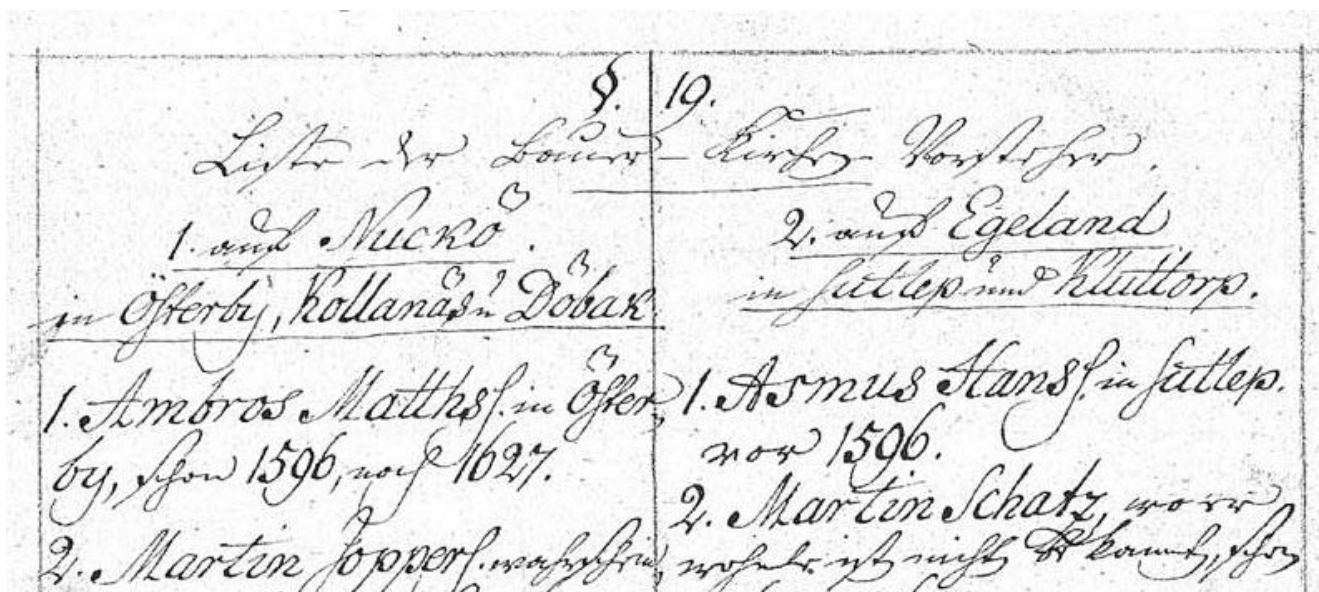 §. 19.
Liste der Bauer-Kirchen-Vorsteher.
1. auf Nuckö.
in Österby, Kollanäs u Döbak.
1. Ambros Matthsf. in Öster,
by, schon 1596, noch 1627.
2. Martin Jopperf. wahrschein,
2. auf Egeland
in Sutlep und Kluttorp.
1. Asmus Hansf. in Sutlep.
vor 1596.
2. Martin Schatz, wo er
wohnte ist nicht bekannt, schon